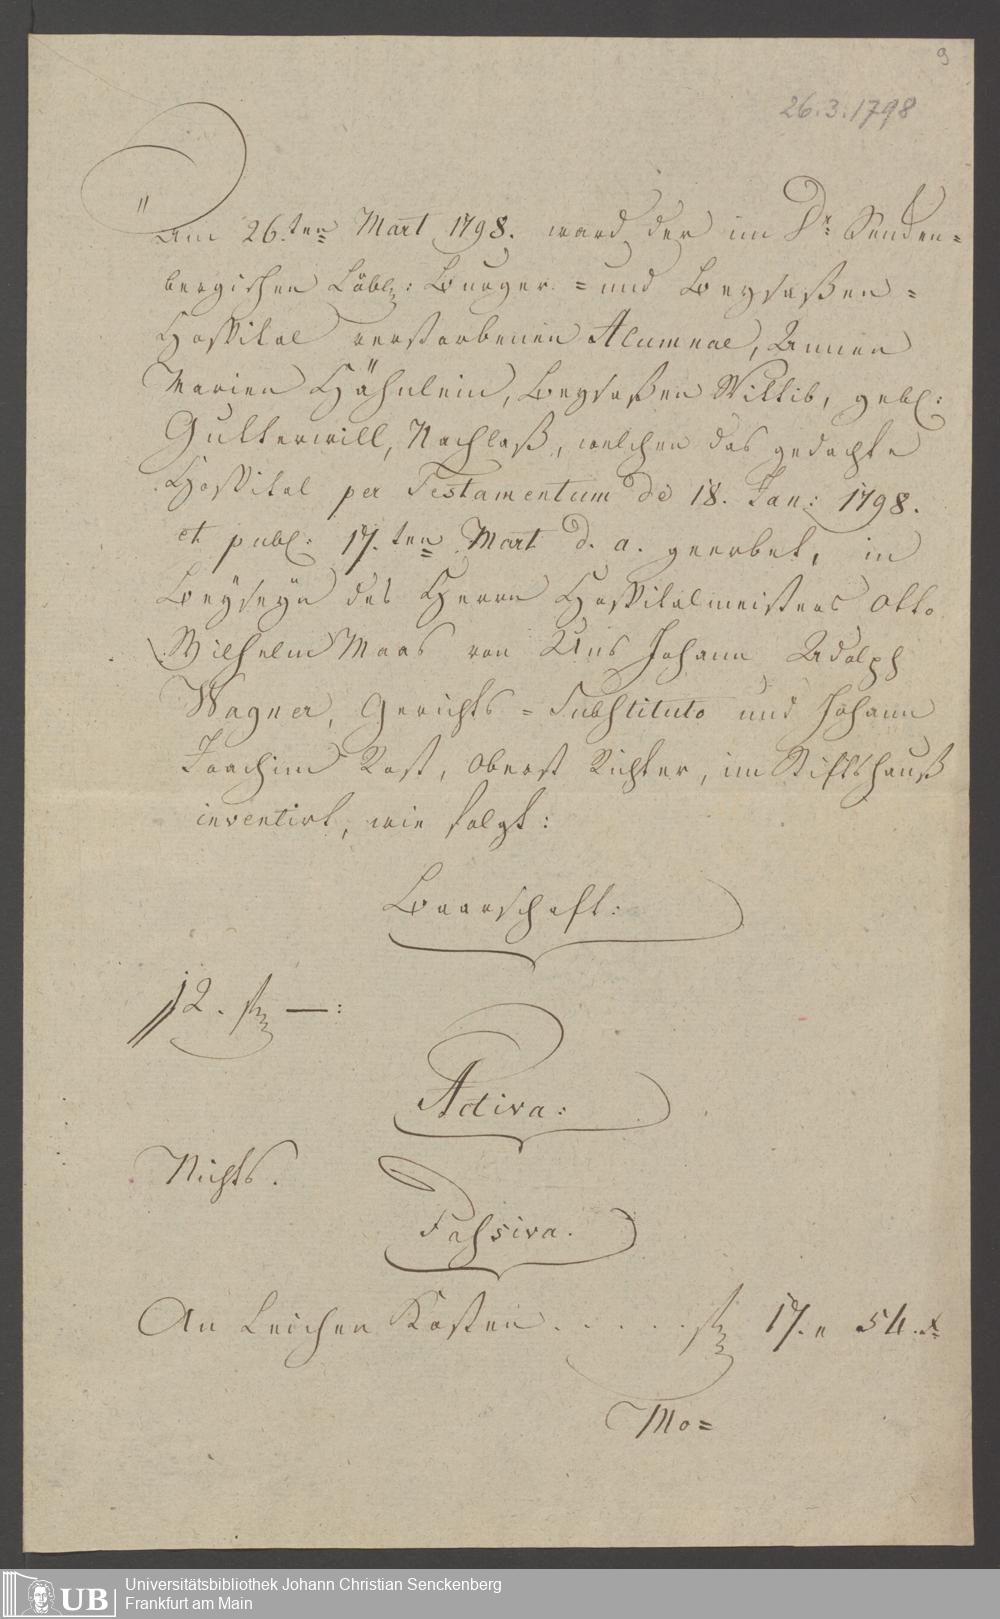 9
26.3.1798
Am 26.ten Mart 1798. ward der im Dr. Senken=
bergischen Löbl: Burger = und Beysaßen =
Hospital verstorbenen Alumnae, Annen
Marien Hähnlein, Beysaßen Wittib, gebl:
Gutterwill, Nachlaß, welchen das gedachte
Hospital per Testamentum de 18. Jan: 1798.
et publ: 17.ten Mart d. a. geerbet, in
Beÿseÿn des Herrn Hospitalmeisters Otto
Wilhelm Maas von Uns Johann Adolph
Wagner, Gerichts = Substituto und Johann
Joachim Rost, Oberst Richter, im Stiftshauß
inventirt, wie folgt:
Baarschaft:
12. f —:
Activa:
Nichts.
Passiva.
An Leichen Kosten . . . . . f 17. " 54. x
Mo=
UB Universitätsbibliothek Johann Christian Senckenberg
Frankfurt am Main